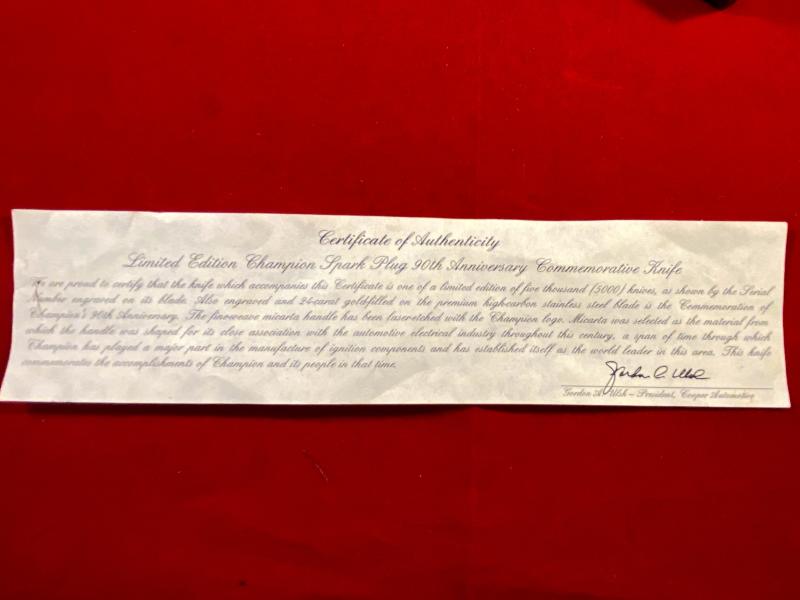 Certificate of Authenticity
Limited Edition Champion Spark Plug 90th Anniversary Commemorative Knife
We are proud to certify that the knife which accompanies this Certificate is one of a limited edition of five thousand (5000) knives, as shown by the Serial
Number engraved on its blade. Also engraved and 24-carat goldfilled on the premium high-carbon stainless steel blade is the Commemoration of
Champion's 90th Anniversary. The fineweave micarta handle has been laser-etched with the Champion logo. Micarta was selected as the material from
which the handle was shaped for its close association with the automotive electrical industry throughout this century, a span of time through which
Champion has played a major part in the manufacture of ignition components and has established itself as the world leader in this area. This knife
commemorates the accomplishments of Champion and its people in that time.
Gordon A. Ulsh – President, Cooper Automotive